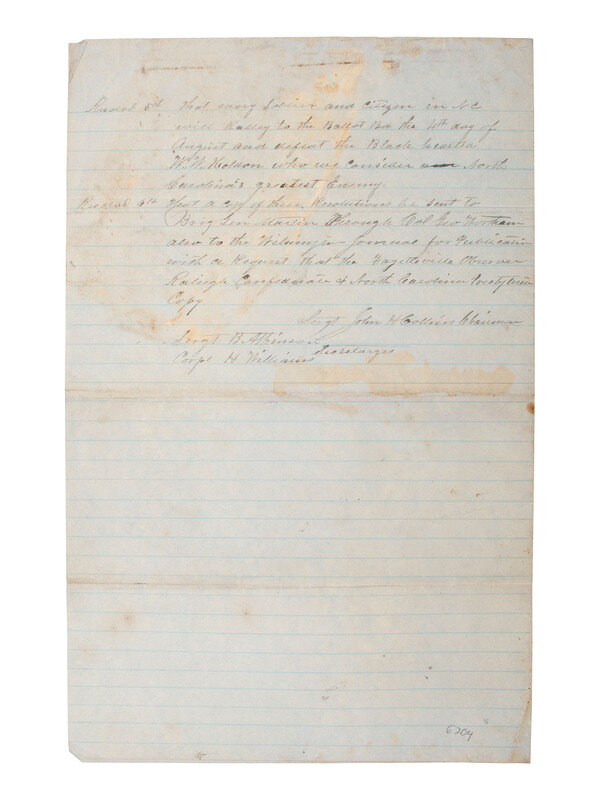 Resolved 5th That every Soldier and Citizen in N.C
will Ralley to the Ballot Box the 4th day of
August and defeat the Black hearted
W.W. Holdon who we consider North
Carolina's greatest Enemy.
Resolved 6th That a copy of these Resolutions be sent to
Brig Gen Martin Through Col Geo Wortham
also to the Wilmington Journal for Publication
with a Request that the Fayettsville Observer
Raleigh Confederate & North Carolina Presbyterian
Copy
Sergt John H Collins Chairman
Sergt B. Atkinson
Corpl H William
6204